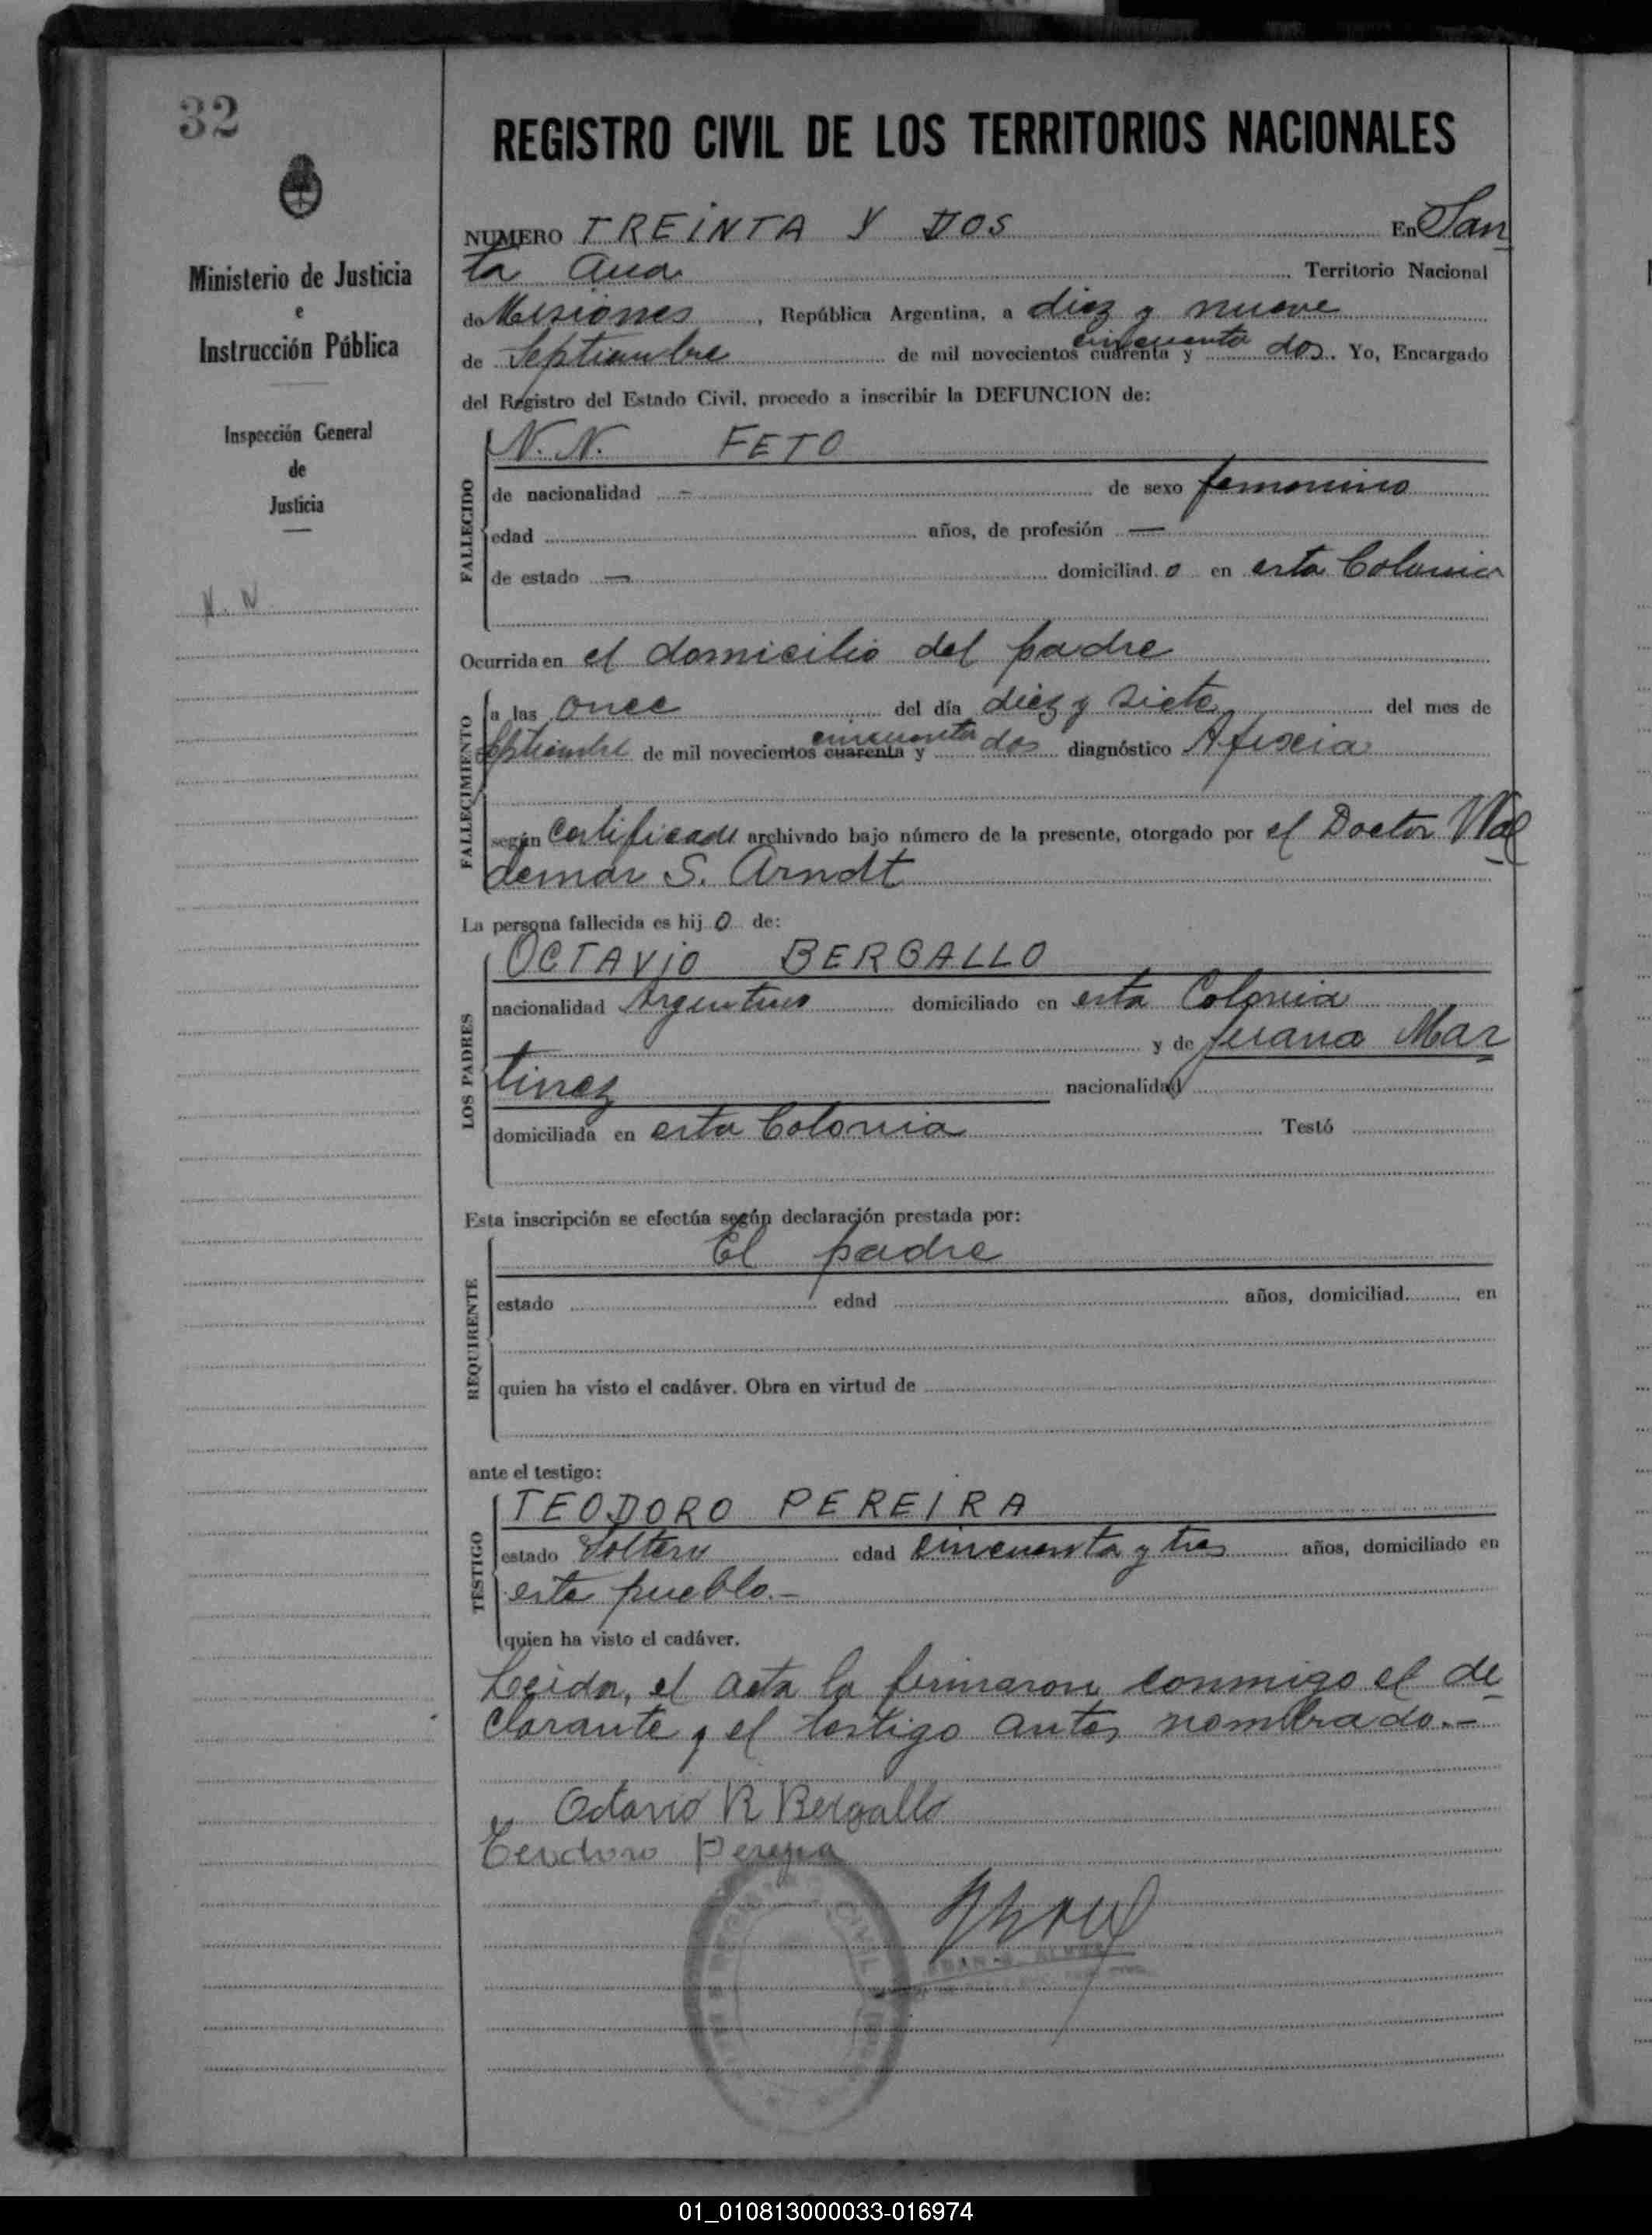 32
Ministerio de Justicia
e
Instrucción Pública
Inspección General
de
Justicia
N. N.
REGISTRO CIVIL DE LOS TERRITORIOS NACIONALES
NUMERO TREINTA Y DOS En San
ta Ana Territorio Nacional
de Misiones, República Argentina, a diez y nueve
de Septiembre de mil novecientos cuarenta y cincuenta dos. Yo, Encargado
del Registro del Estado Civil, procedo a inscribir la DEFUNCION de:
FALLECIDO
N. N. FETO
de nacionalidad - de sexo femenino
edad años, de profesión —
de estado — domiciliad o en esta Colonia
Ocurrida en el domicilio del padre
FALLECIMIENTO
a las once del día diez y siete del mes de
Septiembre de mil novecientos cuarenta y cincuenta dos diagnóstico Afixia
según Certificado archivado bajo número de la presente, otorgado por el Doctor Wal
demar S. Arndt
La persona fallecida es hij o de:
LOS PADRES
OCTAVIO BERGALLO
nacionalidad Argentino domiciliado en esta Colonia
y de Juana Mar
tinez nacionalidad
domiciliada en esta Colonia Testó
Esta inscripción se efectúa según declaración prestada por:
REQUIRENTE
El padre
estado edad años, domiciliad en
quien ha visto el cadáver. Obra en virtud de
ante el testigo:
TESTIGO
TEODORO PEREIRA
estado Soltero edad cincuenta y tres años, domiciliado en
este pueblo.-
quien ha visto el cadáver.
Leida, el acta la firmaron conmigo el de
clarante y el testigo antes nombrado.-
Octavio R Bergallo
Teodoro Pereyra
CIVIL
01_010813000033-016974